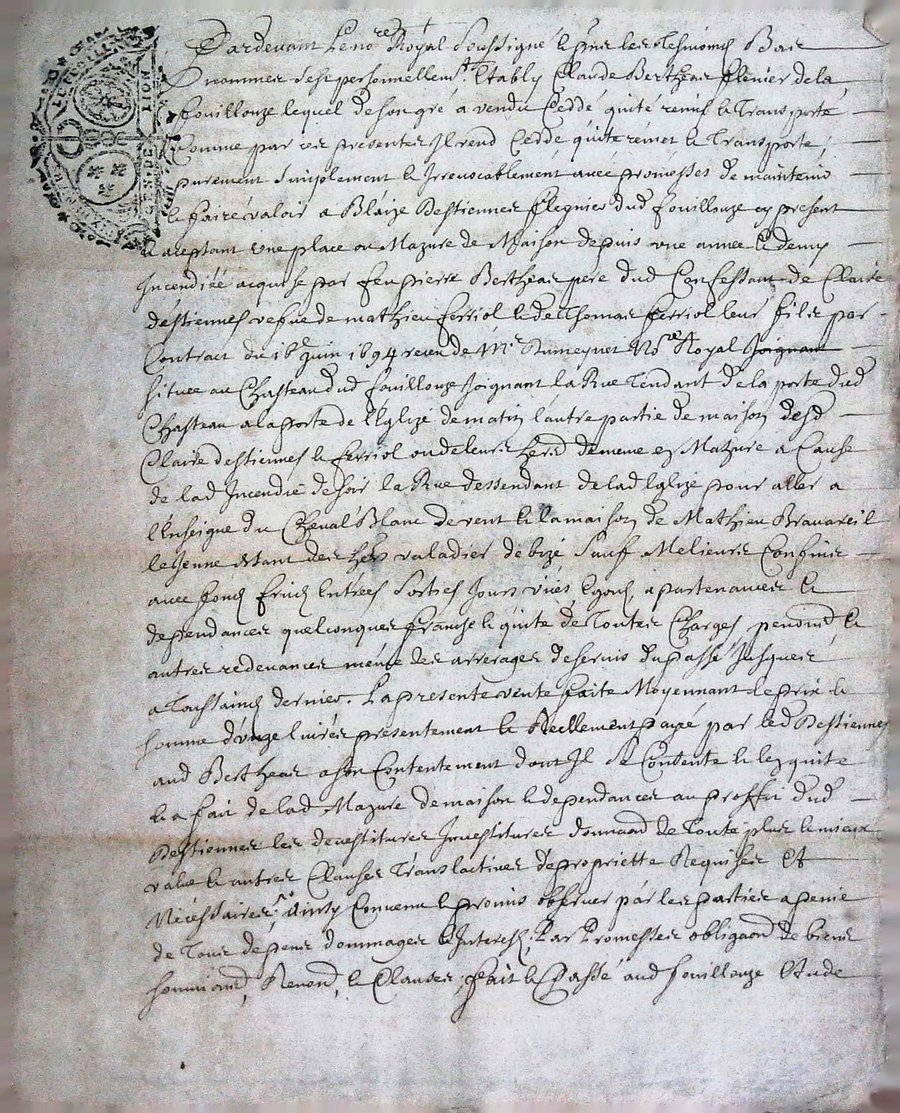 GEN · DE · LION
Pardevant Le no.re Royal Soussigné & pnt les Tesmoins Bas
nommes sest personnellem.t Estably Claude Bertheas de la
fouillouze lequel de son gré a vendu Ceddé quité remis & Transporté
Comme par ces presentes Il vend Cedde quite remet & Transporte
purement simplement & Irrevocablement avec promesses de maintenir
& faire valoir a Blaize Destiennes dud fouillouze cy present
& aceptant une place ou Mazure de Maison depuis une année & demy
Incendiéé acquise par feu pierre Bertheas pere dud Confessant de Claire
destiennes vefve de mathieu ferriol & de Thomas ferriol leur fils par
Contract du 16.e Juin 1694 receu de M.e Dumeynet No.re Royal Joignant
située au Chasteau dud fouillouze Joignant la Rue Tendant de la porte dud
Chasteau a la porte de l'Eglize de matin l'autre partie de maison desd
Claire destiennes & ferriol ou de leurs herd de meme en Mazure a Cause
de lad Incendie de soir la Rue dessendant de lad Eglize pour aller a
l'Enseigne du Cheval Blanc de vent & la maison de Mathieu
le Jeune estant des her valadier de bize Sauf Melieurs Confins
avec fonds Entrees Sorties Jours vues Egouts apartenances &
dependances quelconques franche & quite de Toutes Charges pencions &
autres redevances même des arrerages deservis du passé Jusques
a Toussaincts dernier. La presente vente faite Moyennant le prix &
somme d'onze livres presentement & Reellement payé par led Destiennes
aud Bertheas a son Contentement dont Il se Contente & len quite
& a fait de lad Mazure de maison & dependances au proffit dud
Destiennes les devestitures Investitures donnaon de Toute plus & mieux
value & autres Clauses Translactives de propriette Requises Et
Necessaires, Ainsy Convenu & promis observer par les parties a peine
de Tous depens dommages & Interests, Par Promesses obligaons de biens
soumions, Renons, & Clauses, fait & Passé aud fouillouze Etude